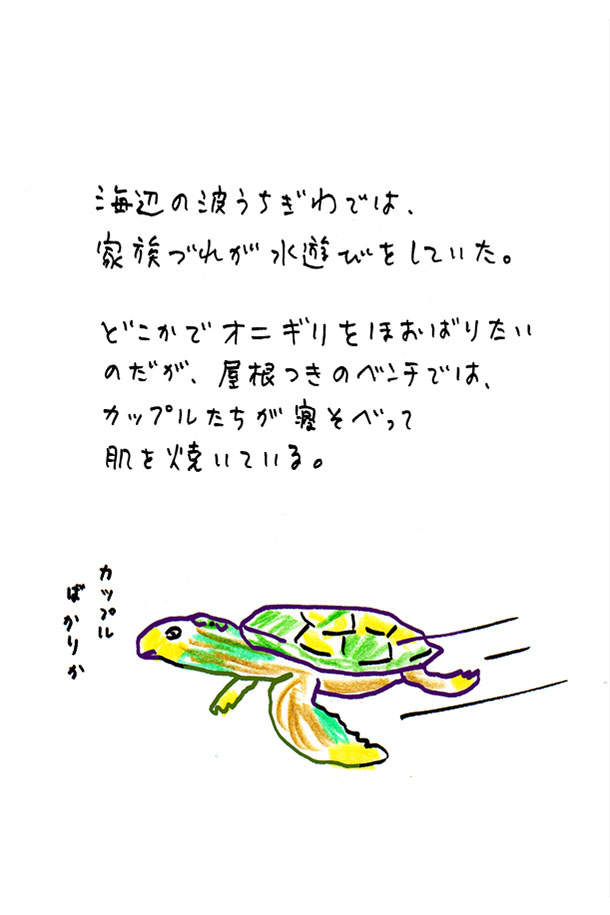 海辺の波うちぎわでは、
家族づれが水遊びをしていた。
どこかでオニギリをほおばりたい
のだが、屋根つきのベンチでは、
カップルたちが寝そべって
肌を焼いている。
カップル
ばかりか